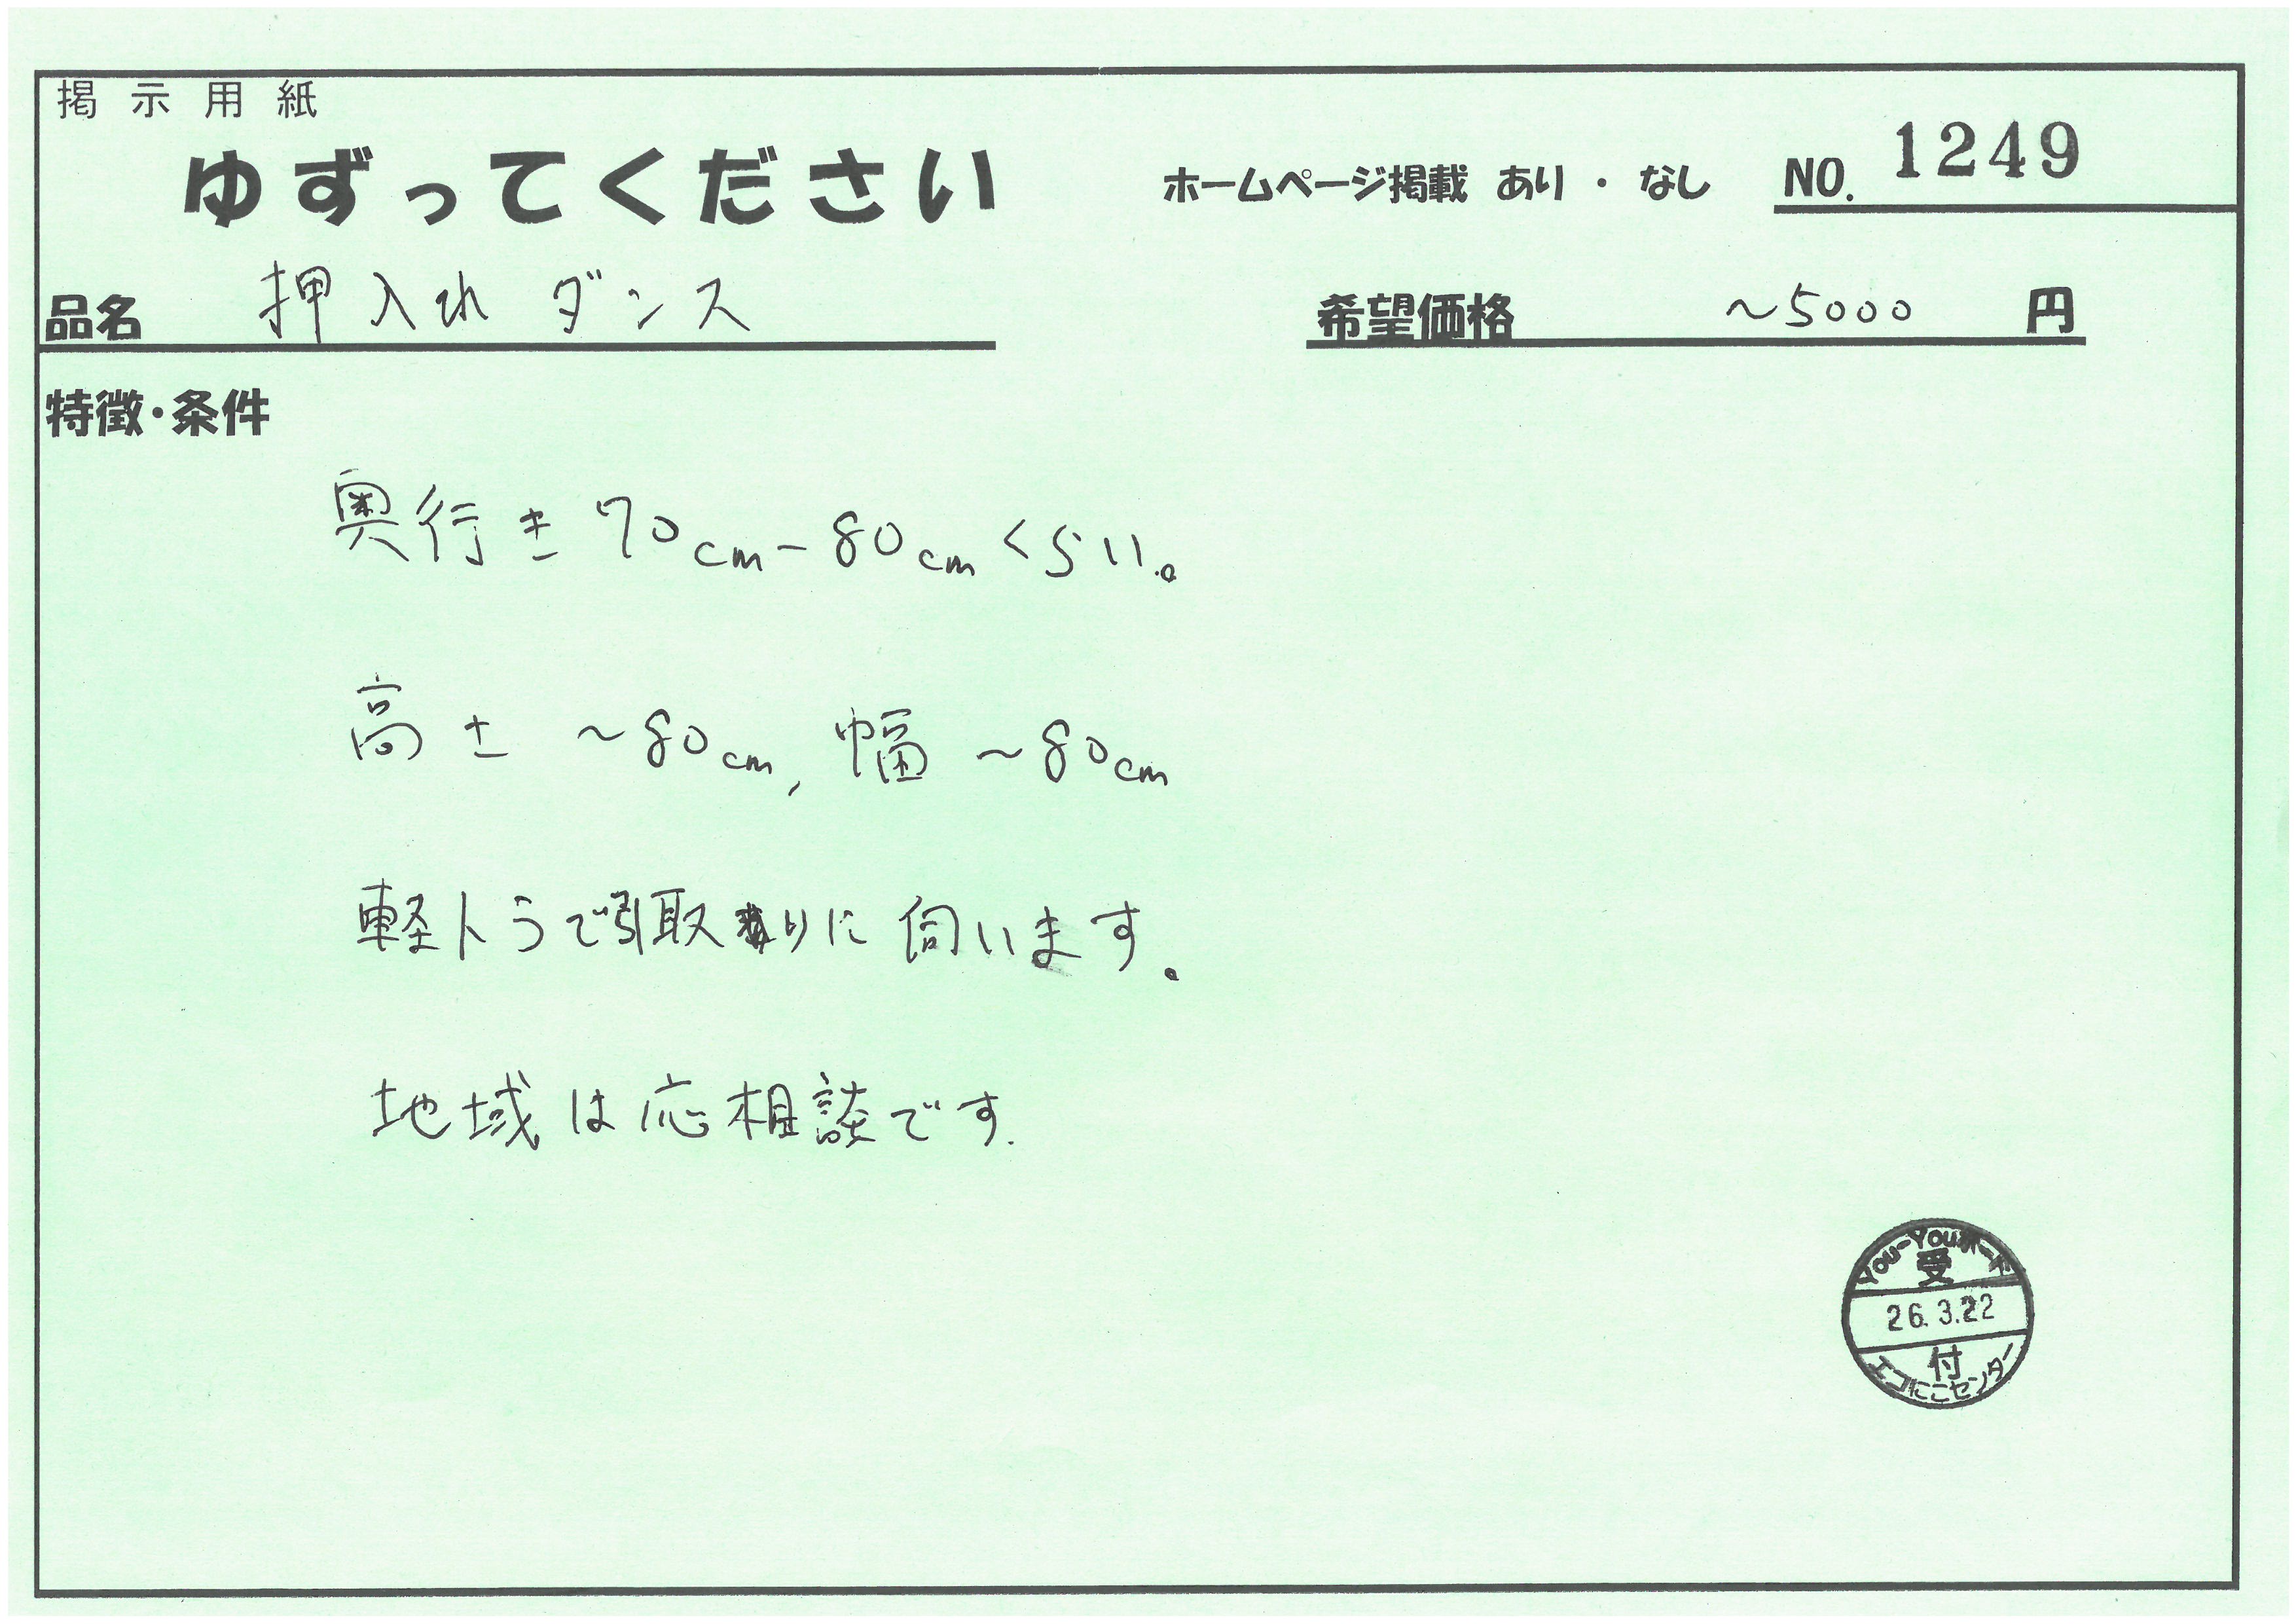 掲示用紙
ゆずってください
ホームページ掲載 あり ・ なし
NO. 1249
品名 押入れ ダンス
希望価格 ～5000 円
特徴・条件
奥行き 70cm-80cmくらい。
高さ ～80cm, 幅 ～80cm
軽トラで引取りに伺います。
地域は応相談です.
You-Youボード
受
26.3.22
付
エコにこセンター